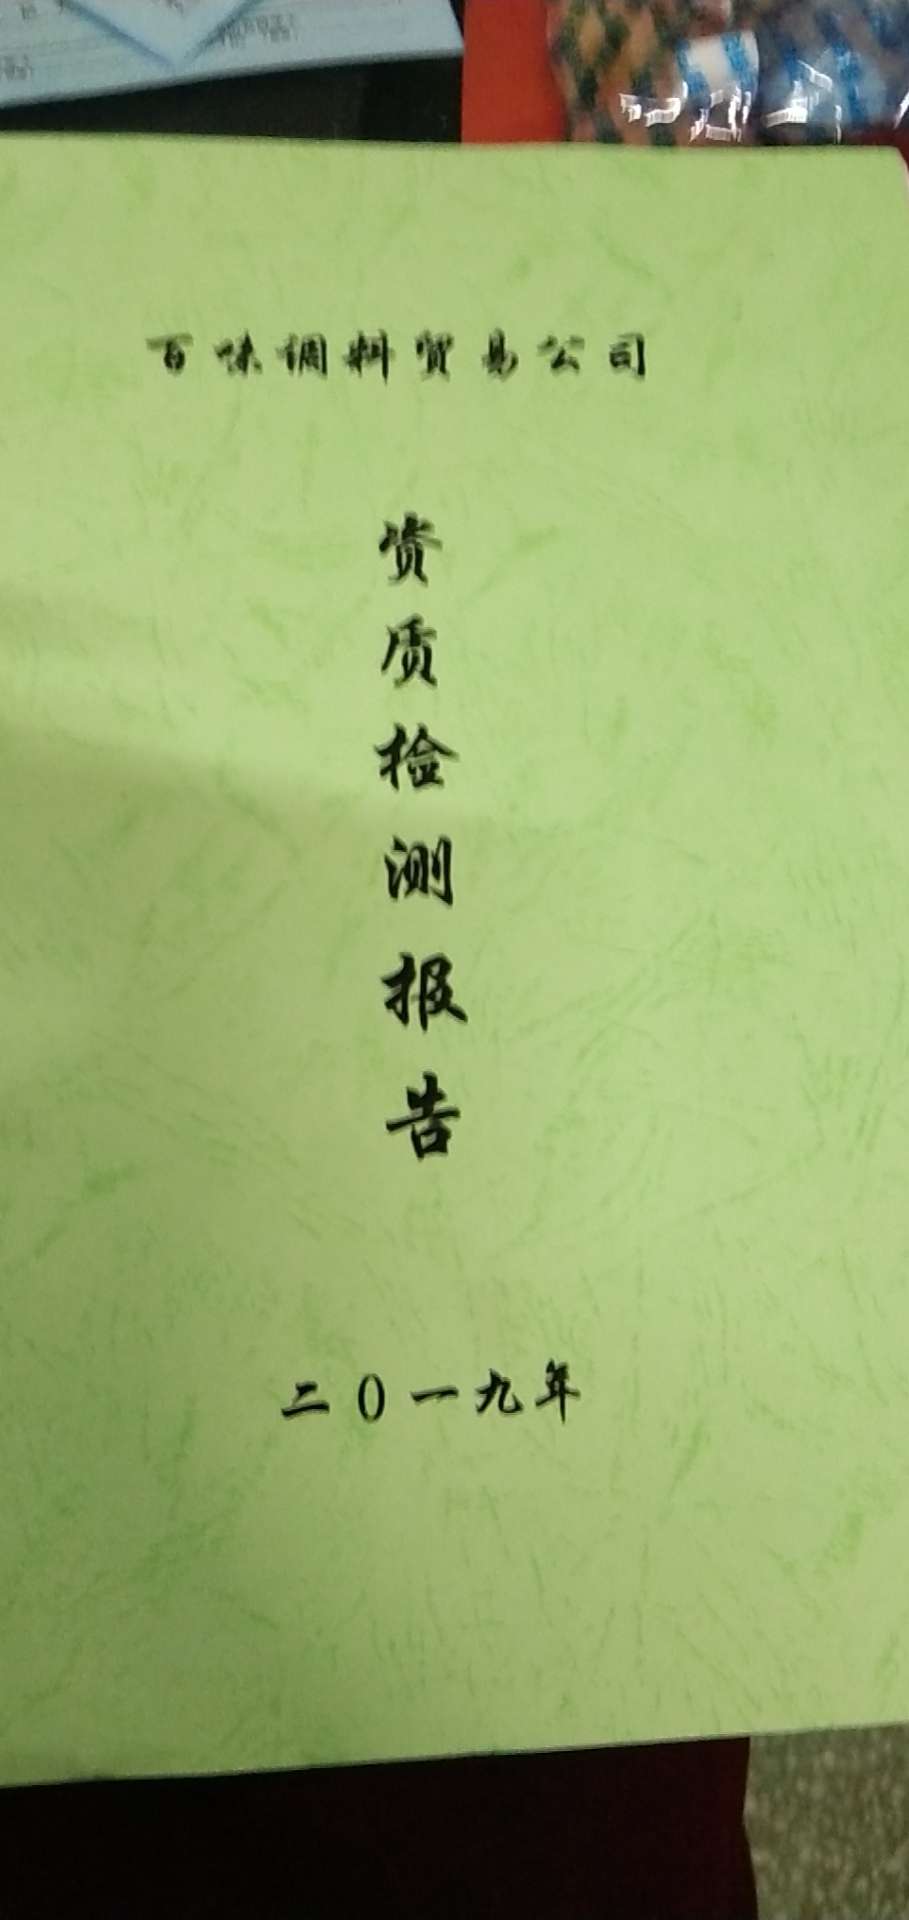 百味调料贸易公司
资质检测报告
二0一九年